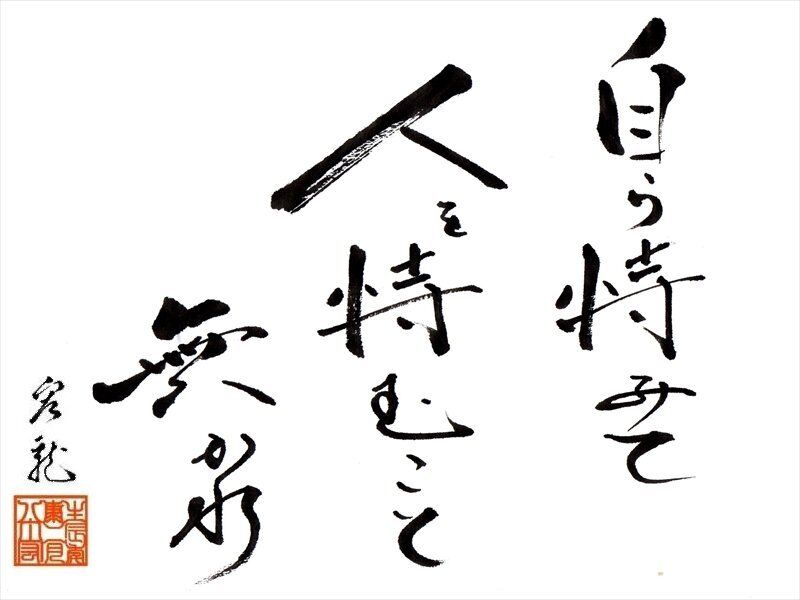 自ら恃みて
人を恃むこと
無かれ
龍